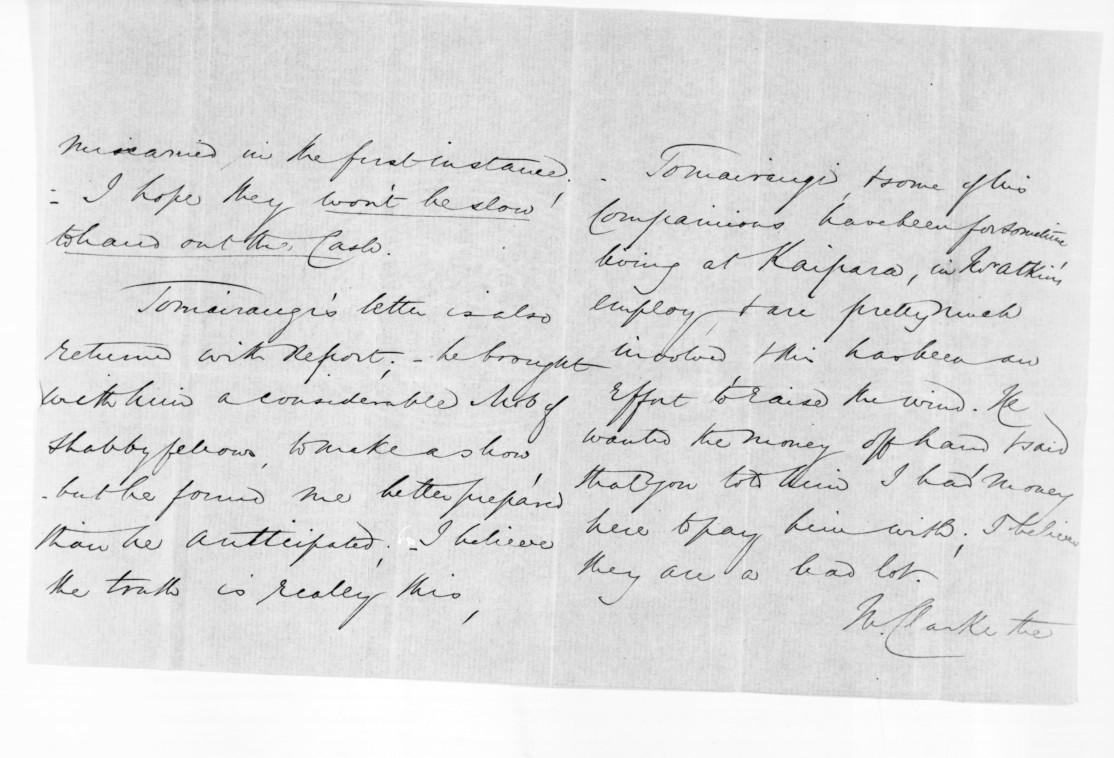 miscarried in the first instance.
- I hope they won't be slow
to hand out the Cash.
Tomairangi's letter is also
returned with Report; - he brought
with him a considerable Mob of
shabby fellows, to make a show,
- but he found me better prepared
than he anticipated; - I believe
the truth is really this,
- Tomairangi & some of his
Companions have been for sometime
living at Kaipara, in Mr Atkin's
employ, & are pretty much
involved & this has been an
Effort to raise the wind. He
wanted the money off hand & said
that you told him I had money
here to pay him with; I believe
they are a bad lot.
Mr. Clarke the